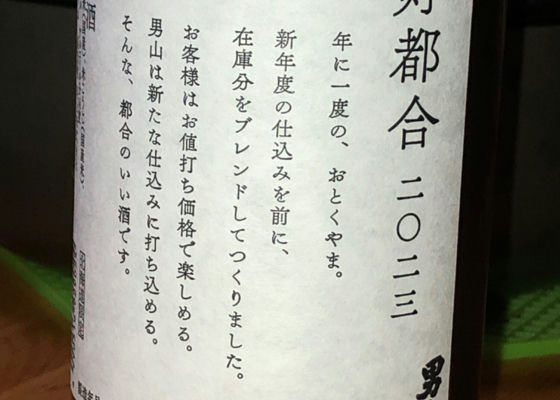 好都合 二〇二三
年に一度の、おとくやま。
新年度の仕込みを前に、
在庫分をブレンドしてつくりました。
お客様はお値打ち価格で楽しめる。
男山は新たな仕込みに打ち込める。
そんな、都合のいい酒です。
男
酒